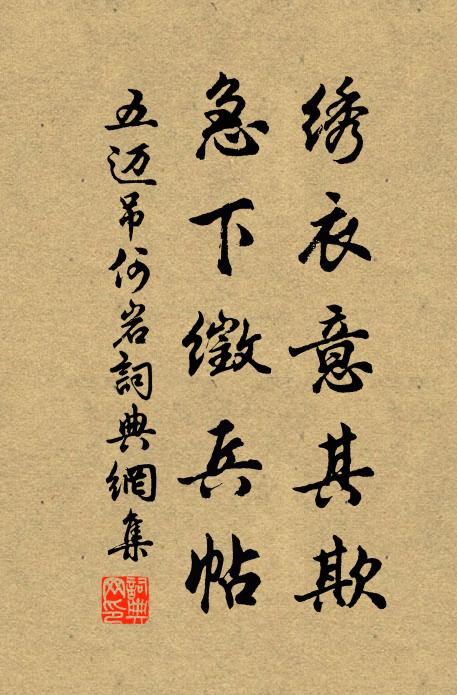 绣衣意其欺
急下徵兵帖
五迈吊何岩詞典網集
詞典网印